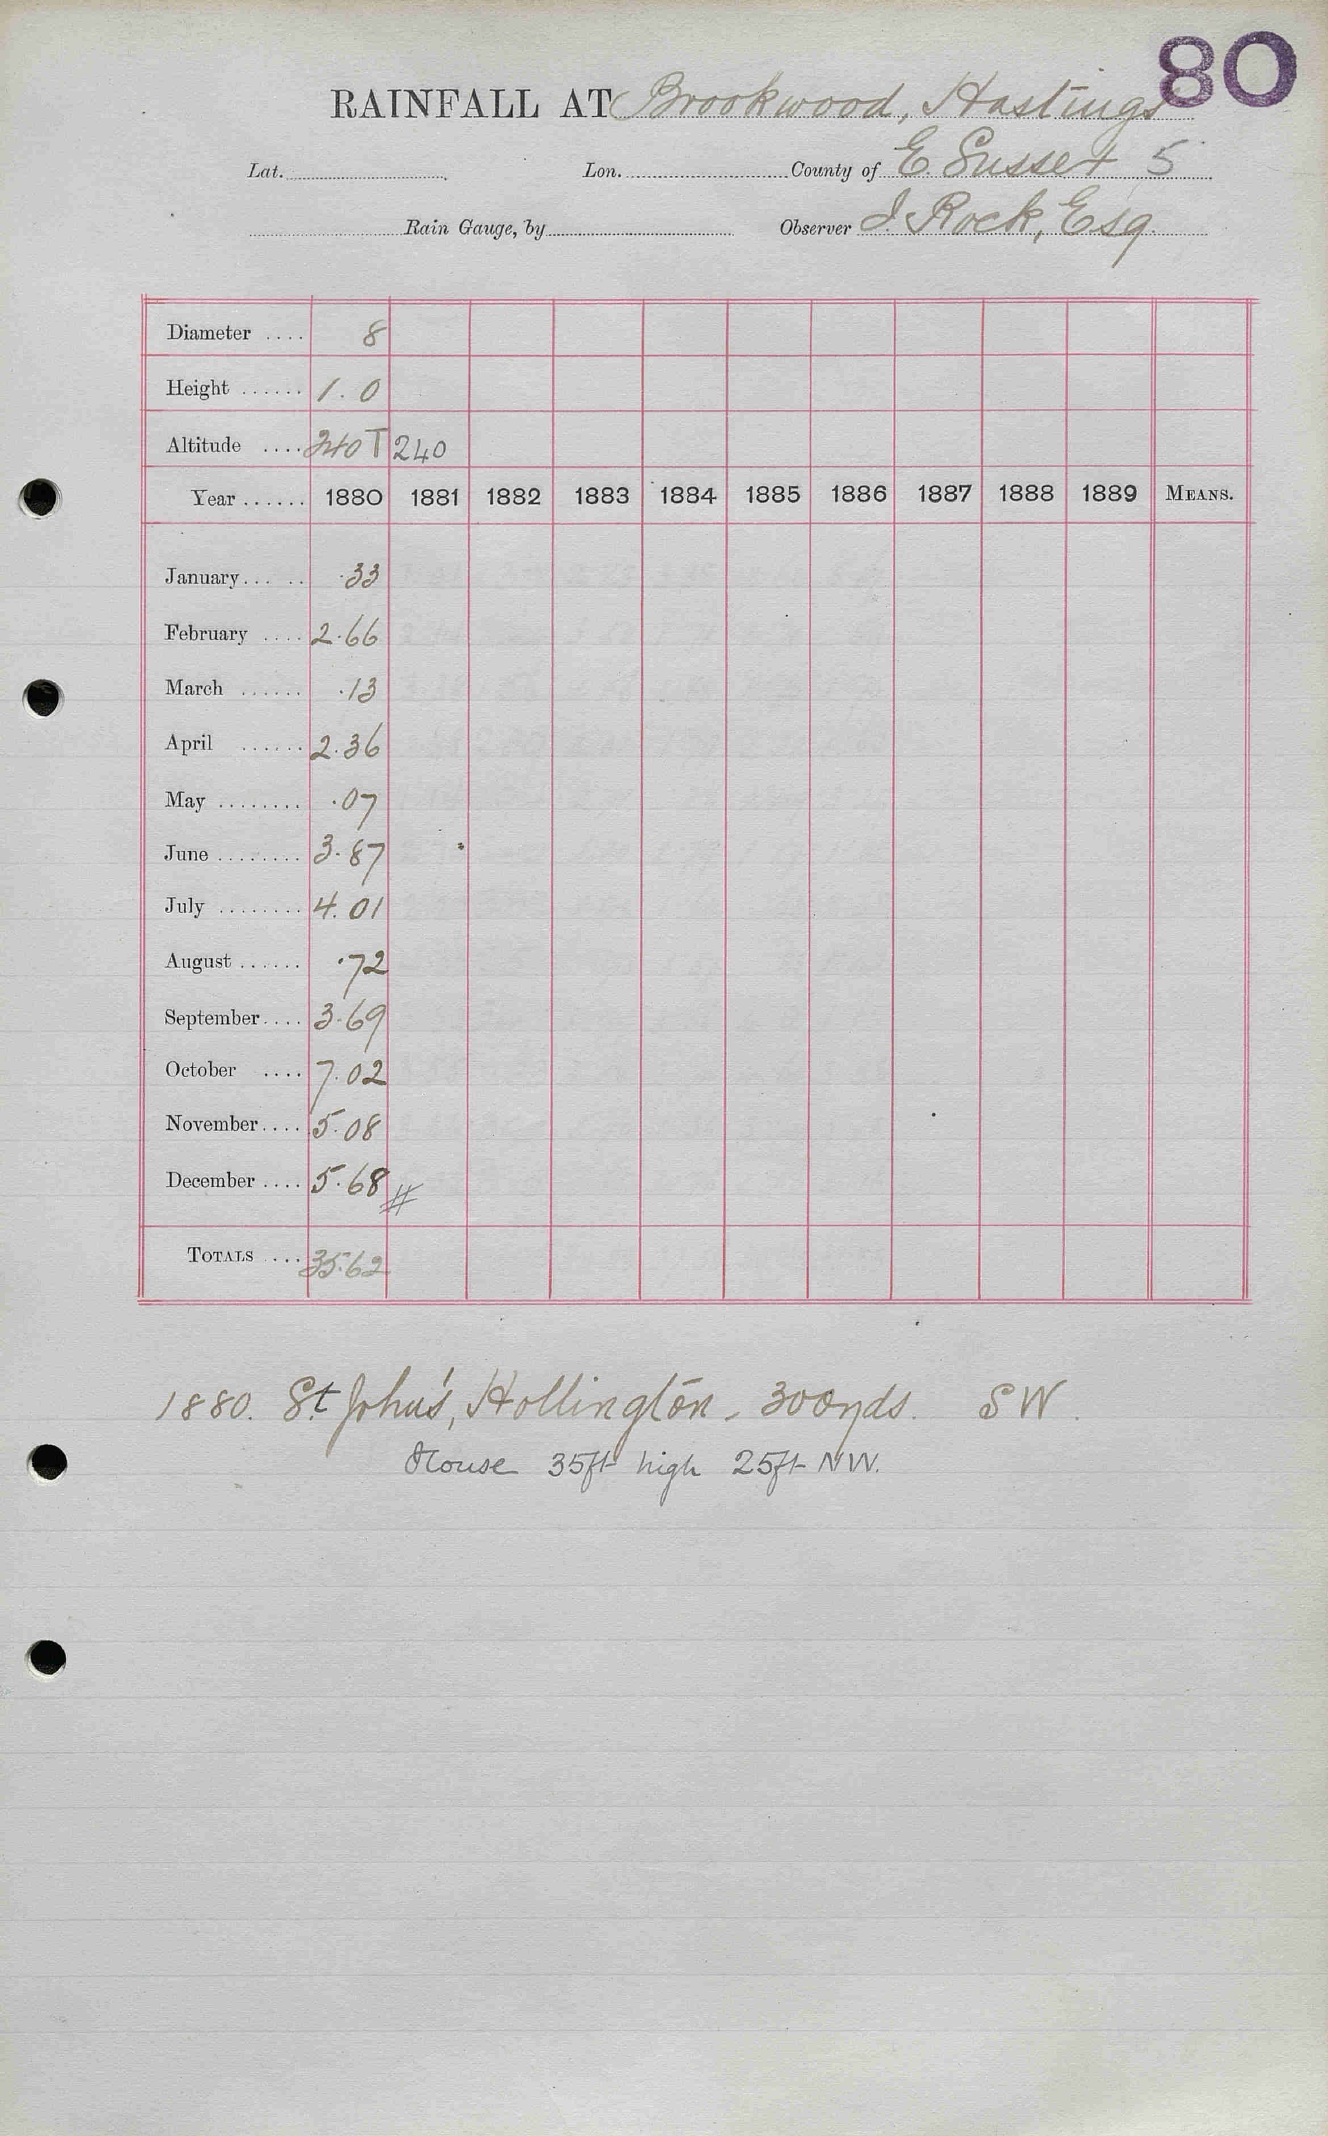 80
RAINFALL AT Brookwood, Hastings
Lat. Lon. County of E. Sussex 5
Rain Gauge, by Observer J. Rock, Esq.
Diameter .... 8
Height ...... 1.0
Altitude .... 240 T 240
Year ...... 1880 1881 1882 1883 1884 1885 1886 1887 1888 1889 MEANS.
January ... .. .33
February .... 2.66
March ...... .13
April ...... 2.36
May ........ .07
June ........ 3.87
July ........ 4.01
August ...... .72
September .... 3.69
October .... 7.02
November .... 5.08
December .... 5.68 #
TOTALS .... 35.62
1880. St. John's, Hollington - 300 yds. SW.
House 35ft high 25ft NW.